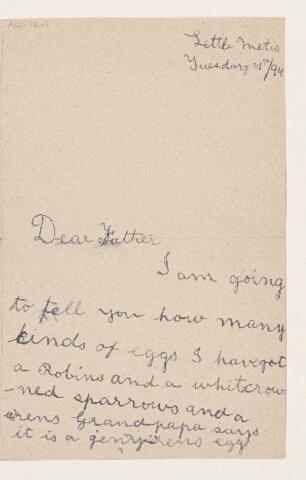 Little Metis
Tuesday 25th/94
Dear Father
I am going
to tell you how many
kinds of eggs I have got
a Robins and a whitcrow-
-ned sparrows and a
wrens Grandpapa says
it is a genry wrens egg